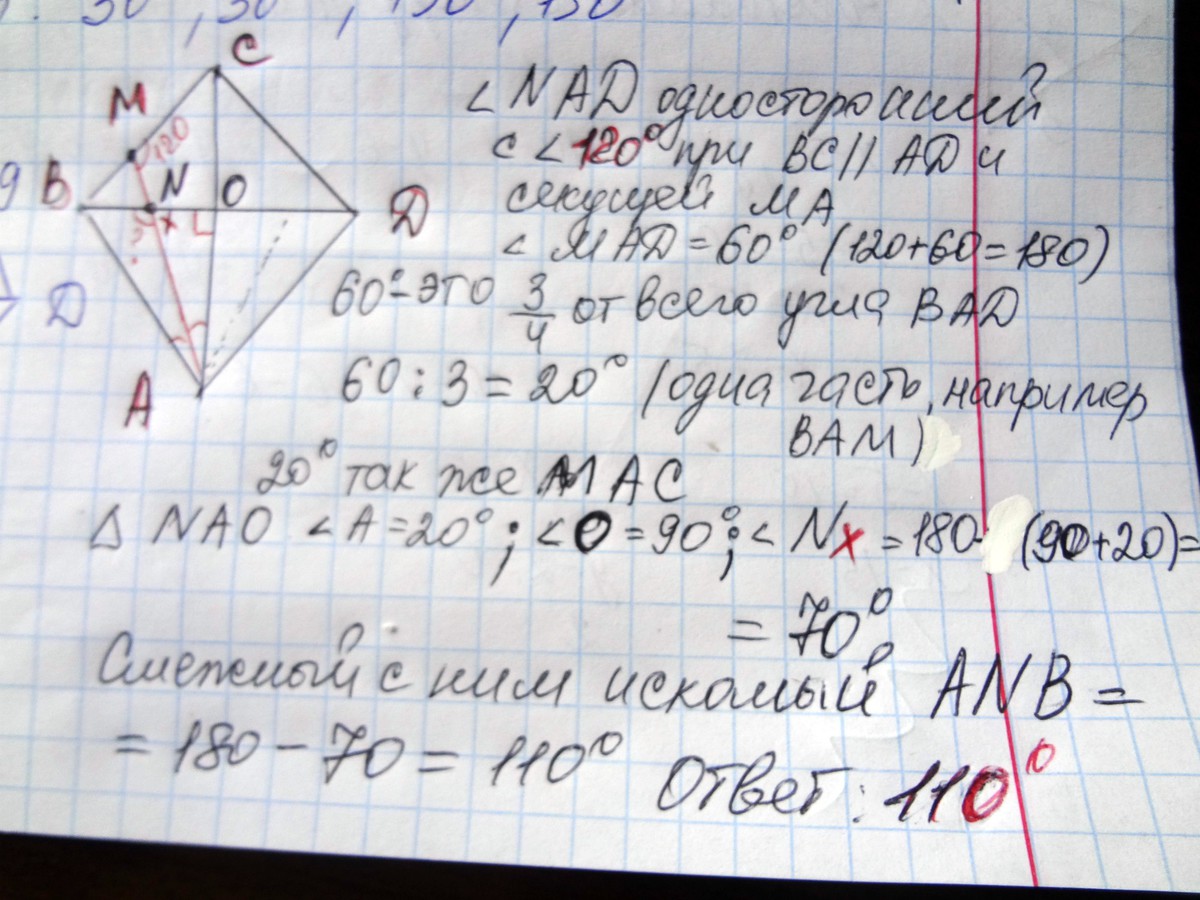 30°, 30°, 150°, 150°
C
M
120
B
N
O
D
x
?
A
9
D
< NAD односторонний
с < 120° при BC || AD и
секущей MA
< MAD = 60° (120+60=180)
60° - это 3/4 от всего угла BAD
60 : 3 = 20° (одна часть, например
BAM)
20° так же MAC
△ NAO < A = 20° ; < O = 90° ; < Nx = 180 - (90+20) =
= 70°
Смежный с ним искомый ANB =
= 180 - 70 = 110°
Ответ: 110°